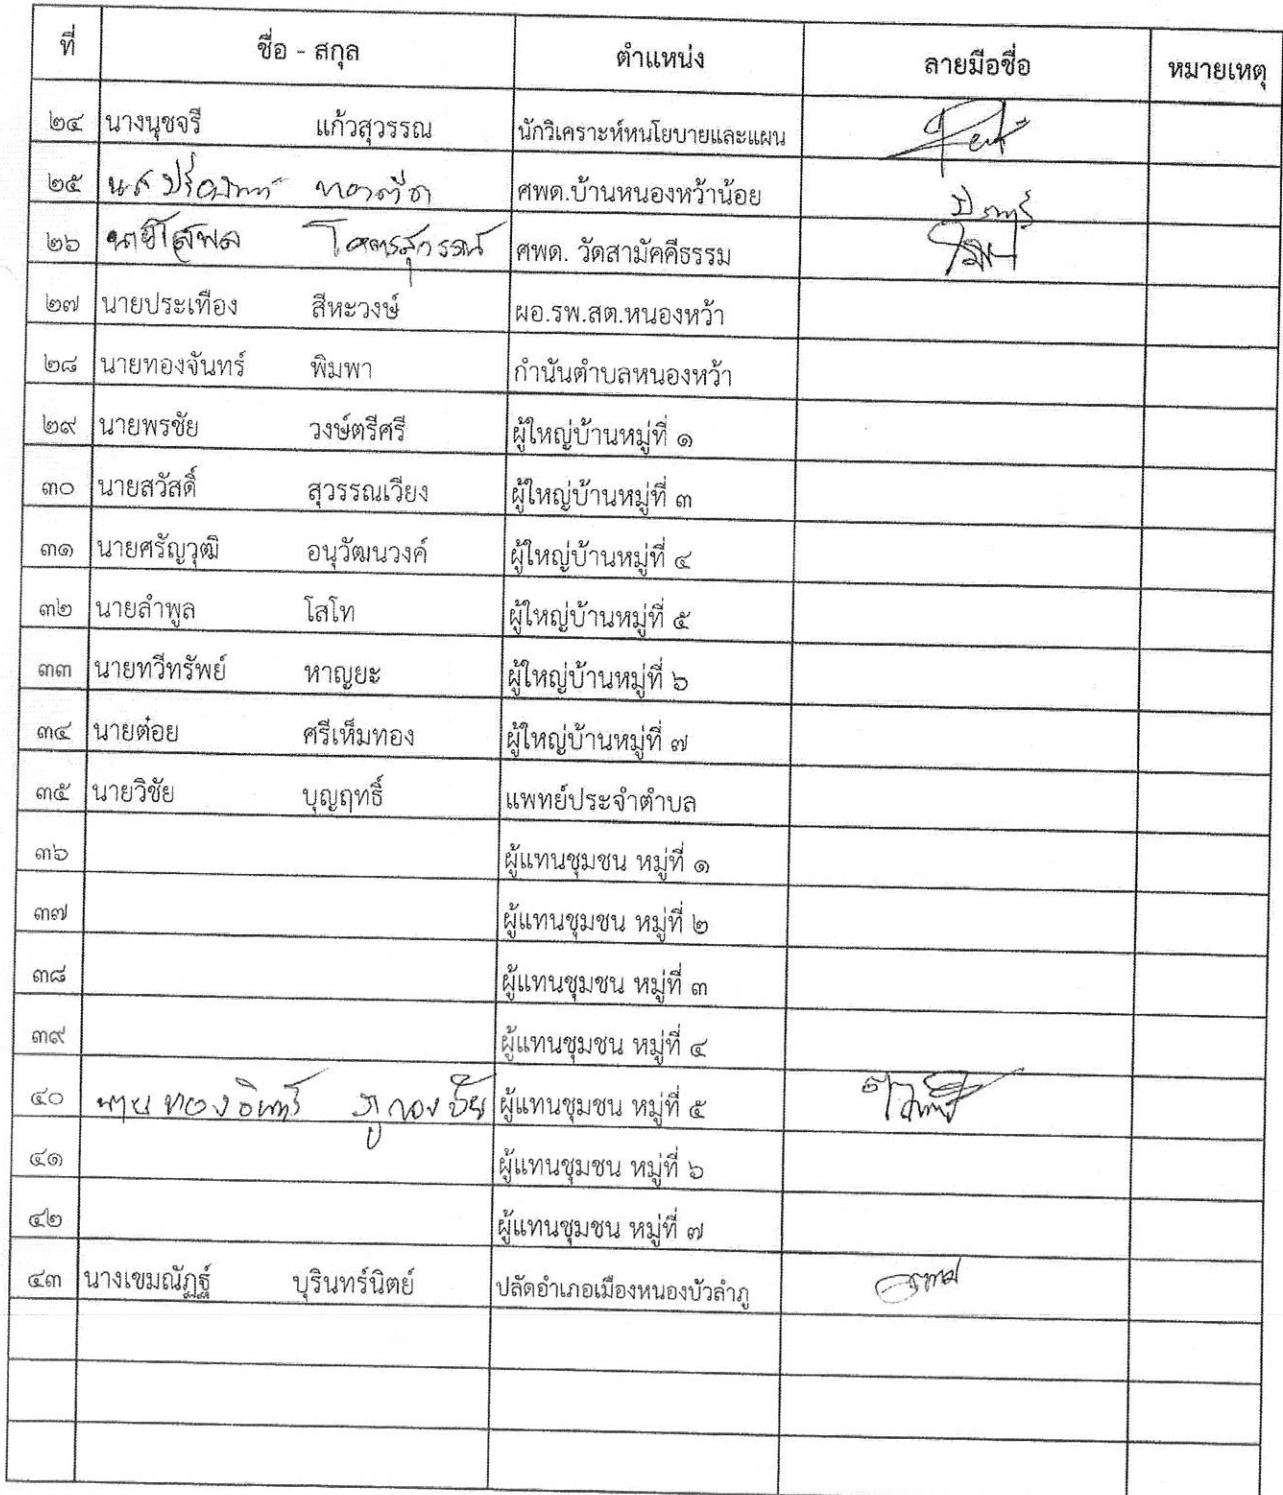 ที่ ชื่อ - สกุล ตำแหน่ง ลายมือชื่อ หมายเหตุ
๒๔ นางนุชจรี แก้วสุวรรณ นักวิเคราะห์หนโยบายและแผน
๒๕ น.ส ทองตีถา ศพด.บ้านหนองหว้าน้อย
๒๖ นายโสพล โคตรสุวรรณ์ ศพด. วัดสามัคคีธรรม
๒๗ นายประเทือง สีหะวงษ์ ผอ.รพ.สต.หนองหว้า
๒๘ นายทองจันทร์ พิมพา กำนันตำบลหนองหว้า
๒๙ นายพรชัย วงษ์ตรีศรี ผู้ใหญ่บ้านหมู่ที่ ๑
๓๐ นายสวัสดิ์ สุวรรณเวียง ผู้ใหญ่บ้านหมู่ที่ ๓
๓๑ นายศรัญวุฒิ อนุวัฒนวงค์ ผู้ใหญ่บ้านหมู่ที่ ๔
๓๒ นายลำพูล โสโท ผู้ใหญ่บ้านหมู่ที่ ๕
๓๓ นายทวีทรัพย์ หาญยะ ผู้ใหญ่บ้านหมู่ที่ ๖
๓๔ นายต๋อย ศรีเห็มทอง ผู้ใหญ่บ้านหมู่ที่ ๗
๓๕ นายวิชัย บุญฤทธิ์ แพทย์ประจำตำบล
๓๖ ผู้แทนชุมชน หมู่ที่ ๑
๓๗ ผู้แทนชุมชน หมู่ที่ ๒
๓๘ ผู้แทนชุมชน หมู่ที่ ๓
๓๙ ผู้แทนชุมชน หมู่ที่ ๔
๔๐ นาย ทองอินทร์ ภูกองชัย ผู้แทนชุมชน หมู่ที่ ๕
๔๑ ผู้แทนชุมชน หมู่ที่ ๖
๔๒ ผู้แทนชุมชน หมู่ที่ ๗
๔๓ นางเขมณัฏฐ์ บุรินทร์นิตย์ ปลัดอำเภอเมืองหนองบัวลำภู